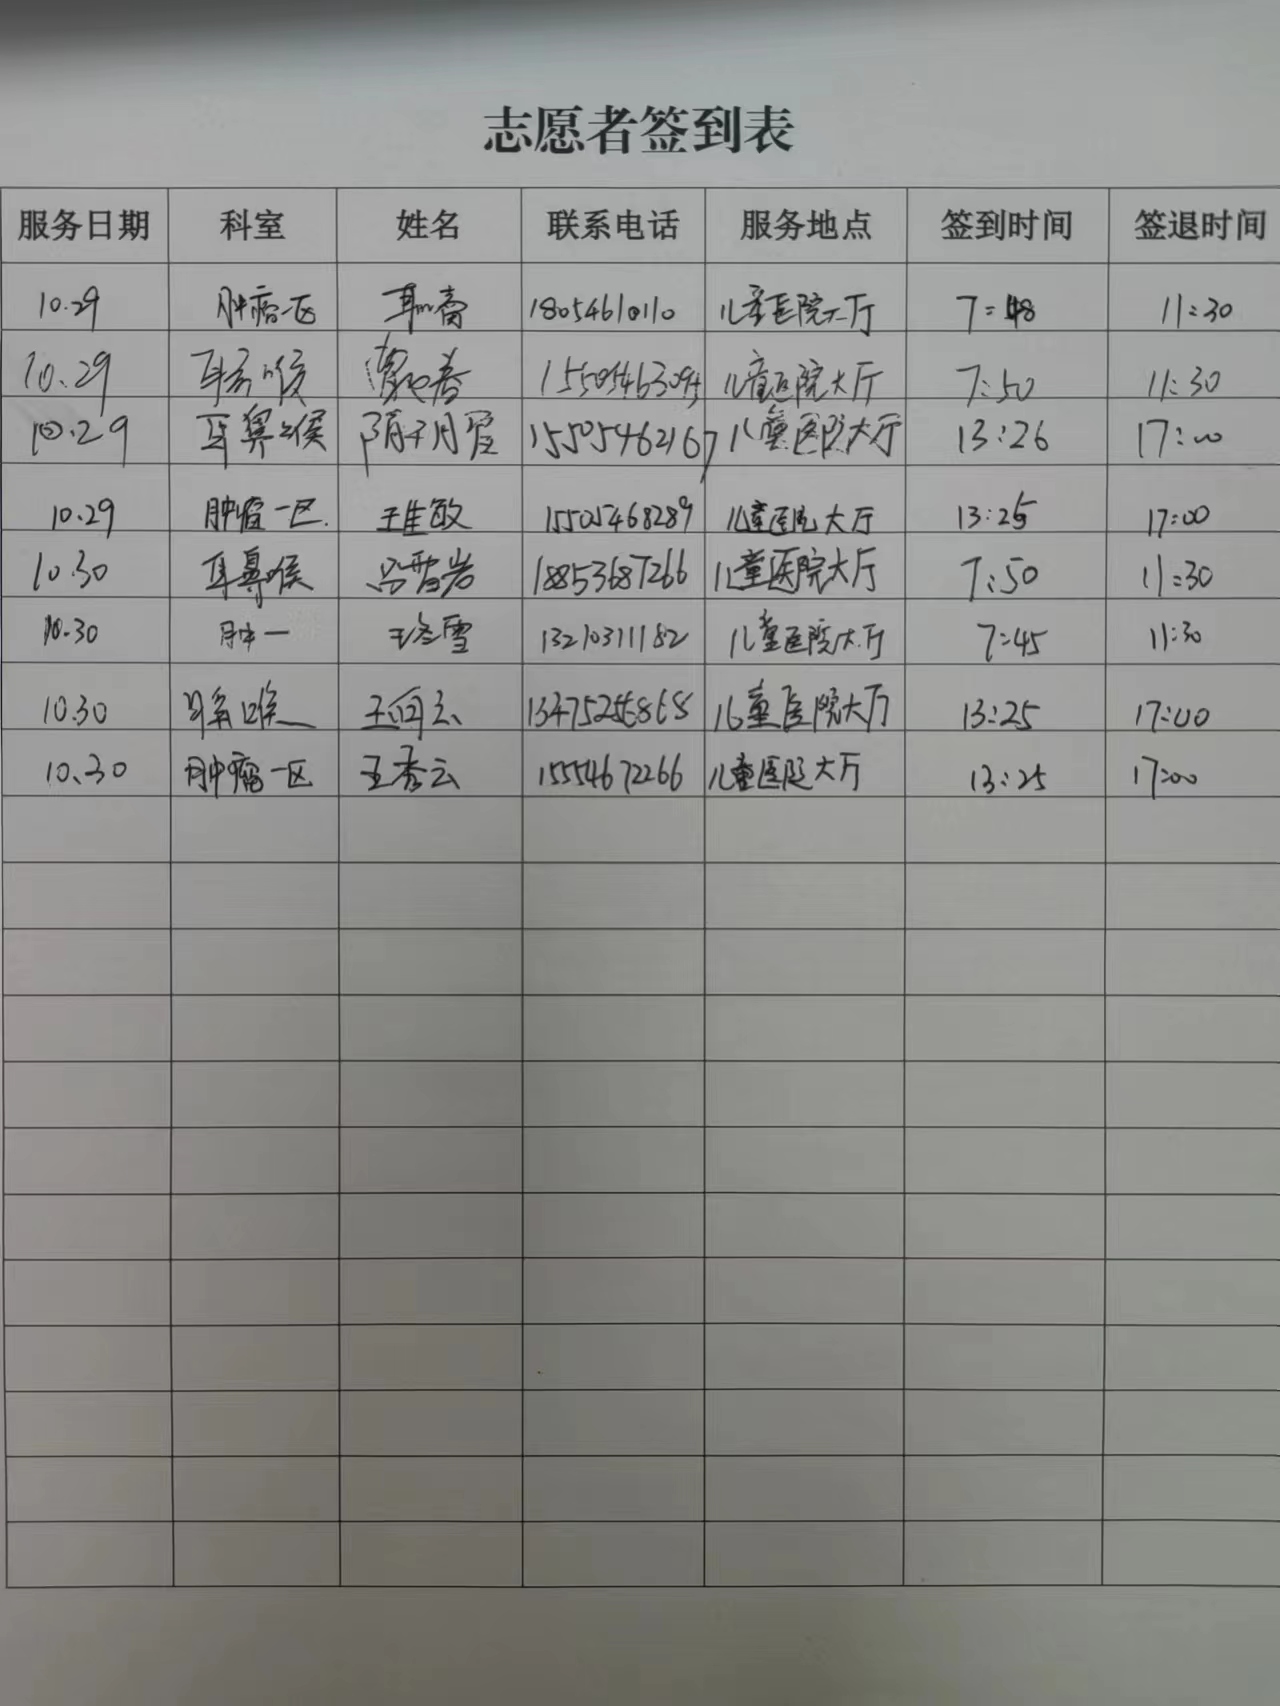 志愿者签到表
服务日期 科室 姓名 联系电话 服务地点 签到时间 签退时间
10.29 肿瘤一区 18054610110 儿童医院大厅 7:48 11:30
10.29 耳鼻喉 15505463094 儿童医院大厅 7:50 11:30
10.29 耳鼻喉 15505462167 儿童医院大厅 13:26 17:00
10.29 肿瘤一区. 王佳敏 15505468289 儿童医院大厅 13:25 17:00
10.30 耳鼻喉 冯雪岩 18853687266 儿童医院大厅 7:50 11:30
10.30 肿一 13210311182 儿童医院大厅 7:45 11:30
10.30 耳鼻喉 王向云 儿童医院大厅 13:25 17:00
10.30 肿瘤一区 王秀云 15554672266 儿童医院大厅 13:25 17:00